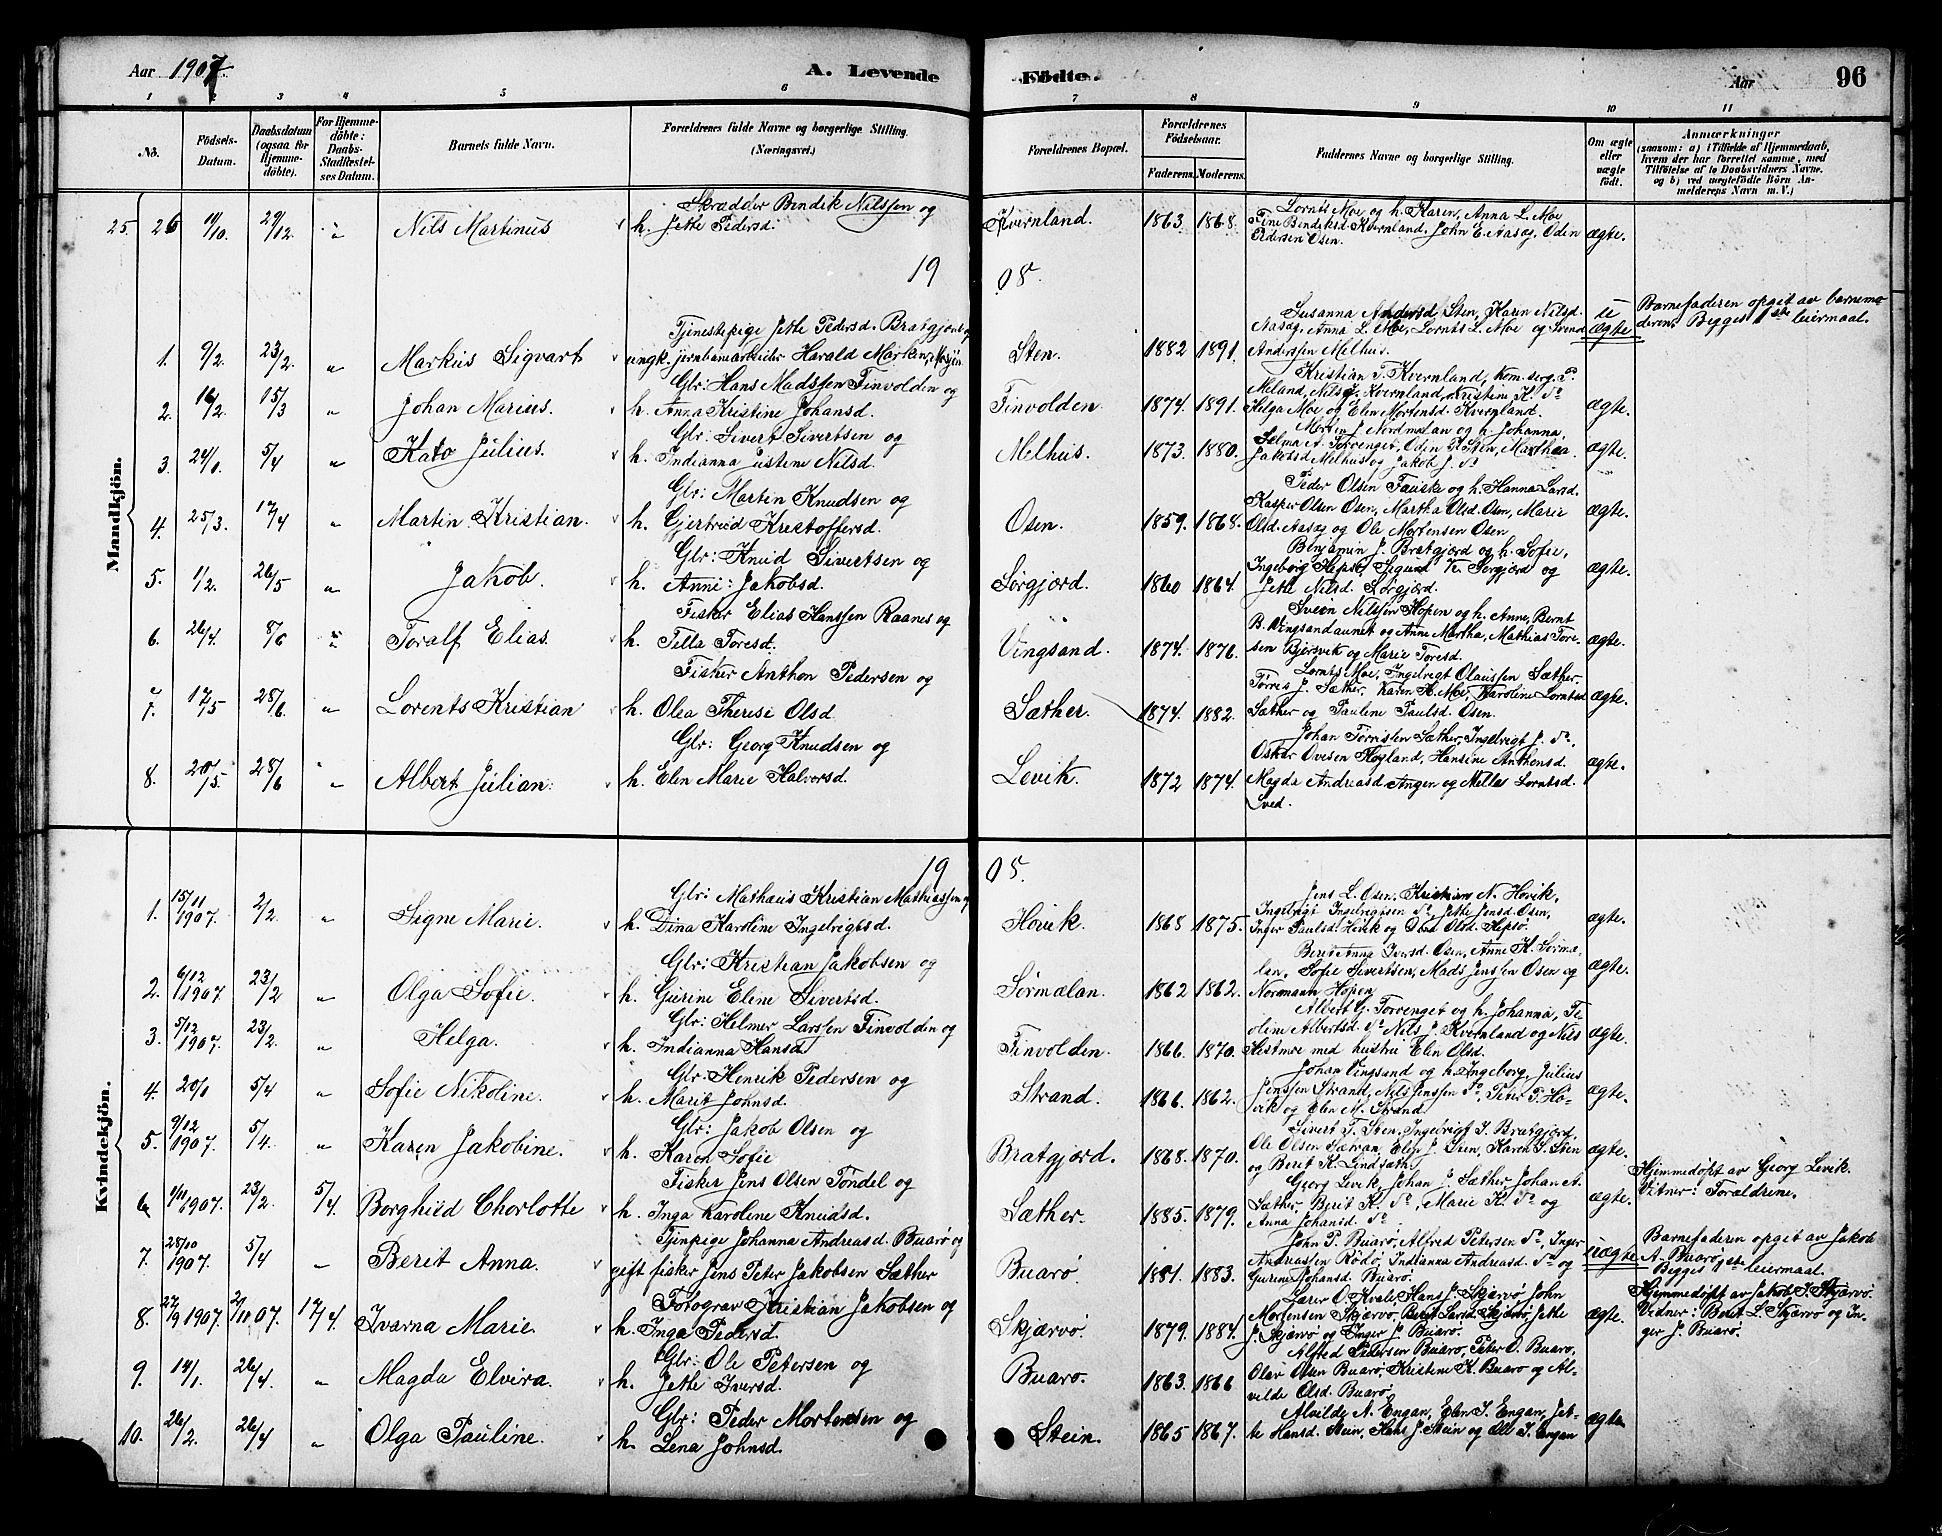 Aar 1907. A. Levende Födte. Aar 96
1 2 3 4 5 6 7 8 9 10 11
No. Födsels-Datum. Daabsdatum (ogsaa for Hjemme-döbte). For Hjemme-döbte: Daabs-Stadfæstel-ses Datum. Barnets fulde Navn. Forældrenes fulde Navne og borgerlige Stilling. (Næringsvei.) Forældrenes Bopæl. Forældrenes Födselsaar. Faderens. Moderens. Faddernes Navne og borgerlige Stilling. Om ægte eller uægte födt. Anmærkninger (saasom: a) i Tilfælde af Hjemmedaab, hvem der har forrettet samme, med Tilföielse af to Daabsvidners Navne, og b) ved uægtefödte Börn An-melderens Navn m. V.)
Mandkjön.
25. 26 11/10. 29/12. " Nils Martinus Skrædder Bendik Nilssen og h. Jette Pedersd. Kvernland. 1863 1868. Lornts Moe og h. Karen, Anna L. Moe Tine Bendiksd. Kvernland, John E. Aasag, Oden Pedersen Osen. ægte.
19 08.
1. 9/2. 23/2. " Markus Sigvart Tjenestepige Jette Pedersd. Bratgjord og ungk. jernbanearbeider Harald Markus, Mosjøn Sten. 1882 1891. Susanna Andersd. Sten, Karen Nilsd. Aasag, Anna L. Moe, Lornts L. Moe og Anderssen Melhus. u ægte Barnefaderen opgit av barnemoderen. Begges 1ste leiermaal.
2. 16/2. 15/3 " Johan Marius. Glr: Hans Madssen Finvolden og h. Anna Kristine Johansd. Finvolden. 1874. 1891. Kristian T. Kvernland, kom. serg. P. Meland, Nils J. Kvernland, Kristine K. do Helga Moe og Elen Mortensd. Kvernland. ægte.
3. 24/1. 5/4 " Kato Julius. Glr: Sivert Sivertsen og h. Indianna Justine Nilsd. Melhus. 1873. 1880. Morten J. Nordmelan og h. Johanna, Selma A. Torvenget, Oden P. Sten, Marthea Jakobsd. Melhus og Jakob J. do ægte.
4. 25/3. 17/4 " Martin Kristian. Glr: Martin Knudsen og h. Gjertrud Kristoffersd. Osen. 1859. 1868. Peder Olsen Fauske og h. Hanna Larsd. Kasper Olsen Osen, Martha Olsd. Osen, Marie Olsd. Aasag og Ole Mortensen Osen ægte.
5. 1/2. 26/5 " Jakob. Glr: Knud Sivertsen og h. Anne Jakobsd. Sørgjerd. 1860 1864. Benjamin J. Bratgjerd og h. Sofie, Ingeborg Hepsø, Sigurd K. Sørgjerd og Jette Nilsd. Sørgjerd. ægte.
6. 26/4. 8/6 " Toralf Elias. Fisker Elias Hanssen Raanes og h. Tella Toresd. Vingsand. 1874. 1876. Svein Nilssen Hopen og h. Anne, Bernt B. Vingsandaunet og Anne Martha, Mathias Toresen Bjørsvik og Marie Toresd. ægte.
7. 12/5 28/6. " Lorents Kristian Fisker Anthon Pedersen og h. Olea Therese Olsd. Sæther. 1874. 1882. Lornts Moe, Ingelvigt Olaussen Sæther, Torris J. Sæther, Karen H. Moe, Karoline Lorntsd Sæther og Pauline Paulsd. Osen. ægte.
8. 20/5. 28/6 " Albert Julian. Glr: Georg Knudsen og h. Elen Marie Halvorsd. Levik. 1872 1874. Johan Torrissen Sæther, Ingelvigt J. do, Oskar Ovesen Høyland, Hansine Anthonsd. Magda Andreasd. Angen og Nella Lorntsd. Sved. ægte.
Kvindekjön.
19 05.
1. 15/11 1907. 2/2. " Signe Marie. Glr: Mathæus Kristian Mathiassen og h. Dina Karoline Ingelvigtsd. Høvik. 1868 1875. Jens L. Osen, Kristian N. Høvik, Ingelvigt Ingelvigtsen do, Jette Jensd. Osen, Inger Paulsd. Høvik og Olsd. Hepsø. ægte.
2. 6/12 1907. 23/2 " Olga Sofie. Glr: Kristian Jakobsen og h. Gurine Eline Sivertsd. Sørmelan. 1862 1862. Berit Anna Iversd. Osen, Anne K. Sørmelan, Sofie Sivertsen, Mads Jenssen Osen og Normann Hopen ægte.
3. 5/12 1907. 23/2. " Helga. Glr: Helmer Larssen Finvolden og h. Indianna Hansd. Finvolden. 1866. 1870. Albert G. Torvenget og h. Johanna, Teoline Albertsd. do Nils J. Kvernland og Nils Hestmoe med hustru Elen Olsd. ægte.
4. 20/1 5/4 " Sofie Nikoline. Glr: Henrik Pedersen og h. Marit Johnsd. Strand. 1866. 1862. Johan Vingsand og h. Ingeborg, Julius Jenssen Strand, Nils Jenssen do, Peter P. Høvik og Elen M. Strand. ægte.
5. 9/12 1907. 5/4. " Karen Jakobine. Glr: Jakob Olsen og h. Karen Sofie Bratgjerd. 1868. 1870. Sivert T. Sten, Ingelvigt J. Bratgjerd, Ole Olsen Sætran, Elen J. Sten, Karen S. Sten og Berit K. Lindsæth. ægte.
6 1/11 1907. 23/2. 5/4. Borghild Chorlotte Fisker Jens Olsen Tøndel og h. Inga Karoline Knudsd. Sæther. 1885. 1879. Georg Levik, Johan J. Sæther, Johan A. Sæther, Berit K. do, Marie K. do og Anna Johansd. do ægte. Hjemmedøpt av Georg Levik. Vitner: Forældrene.
7. 28/10 1907. 5/4 " Berit Anna. Tjenpige Johanna Andreasd. Buarø og gift fisker Jens Peter Jakobsen Sæther Buarø. 1881. 1883. John P. Buarø, Alfred Petersen do, Inger Andreassen Rødø, Indianna Andreasd. do og Gurine Johansd. Buarø. uægte Barnefaderen opget av Jakob A. Buarø. Begges 1ste leiermaal.
8. 27/9 1907. 2/11 07. 17/4. Ivarna Marie Fotograv Kristian Jakobsen og h. Inga Pedersd. Skjærvø. 1879. 1884. Lærer O. Kvale, Hans J. Skjærvø, John Mortensen Skjærvø, Berit Larsd. Skjærvø, Jette J. Skjærvø og Inger J. Buarø. ægte. Hjemmedøpt av Jakob J. Skjærvø. Vidner: Berit L. Skjærvø og Inger J. Buarø.
9. 14/1. 26/4. " Magda Elvira. Glr: Ole Petersen og h. Jette Iversd. Buarø. 1863. 1866 Alfred Pedersen Buarø, Peter O. Buarø, Olav Olsen Buarø, Kristine K. Buarø og Alvilde Olsd. Buarø. ægte.
10. 26/2. 26/4 " Olga Pauline. Glr: Peder Mortensen og h. Lena Johnsd. Stein. 1865 1867. Alvilde A. Engan, Elen J. Engan, Jette Hansd. Stein, Hans J. Stein og Ole J. Engan ægte